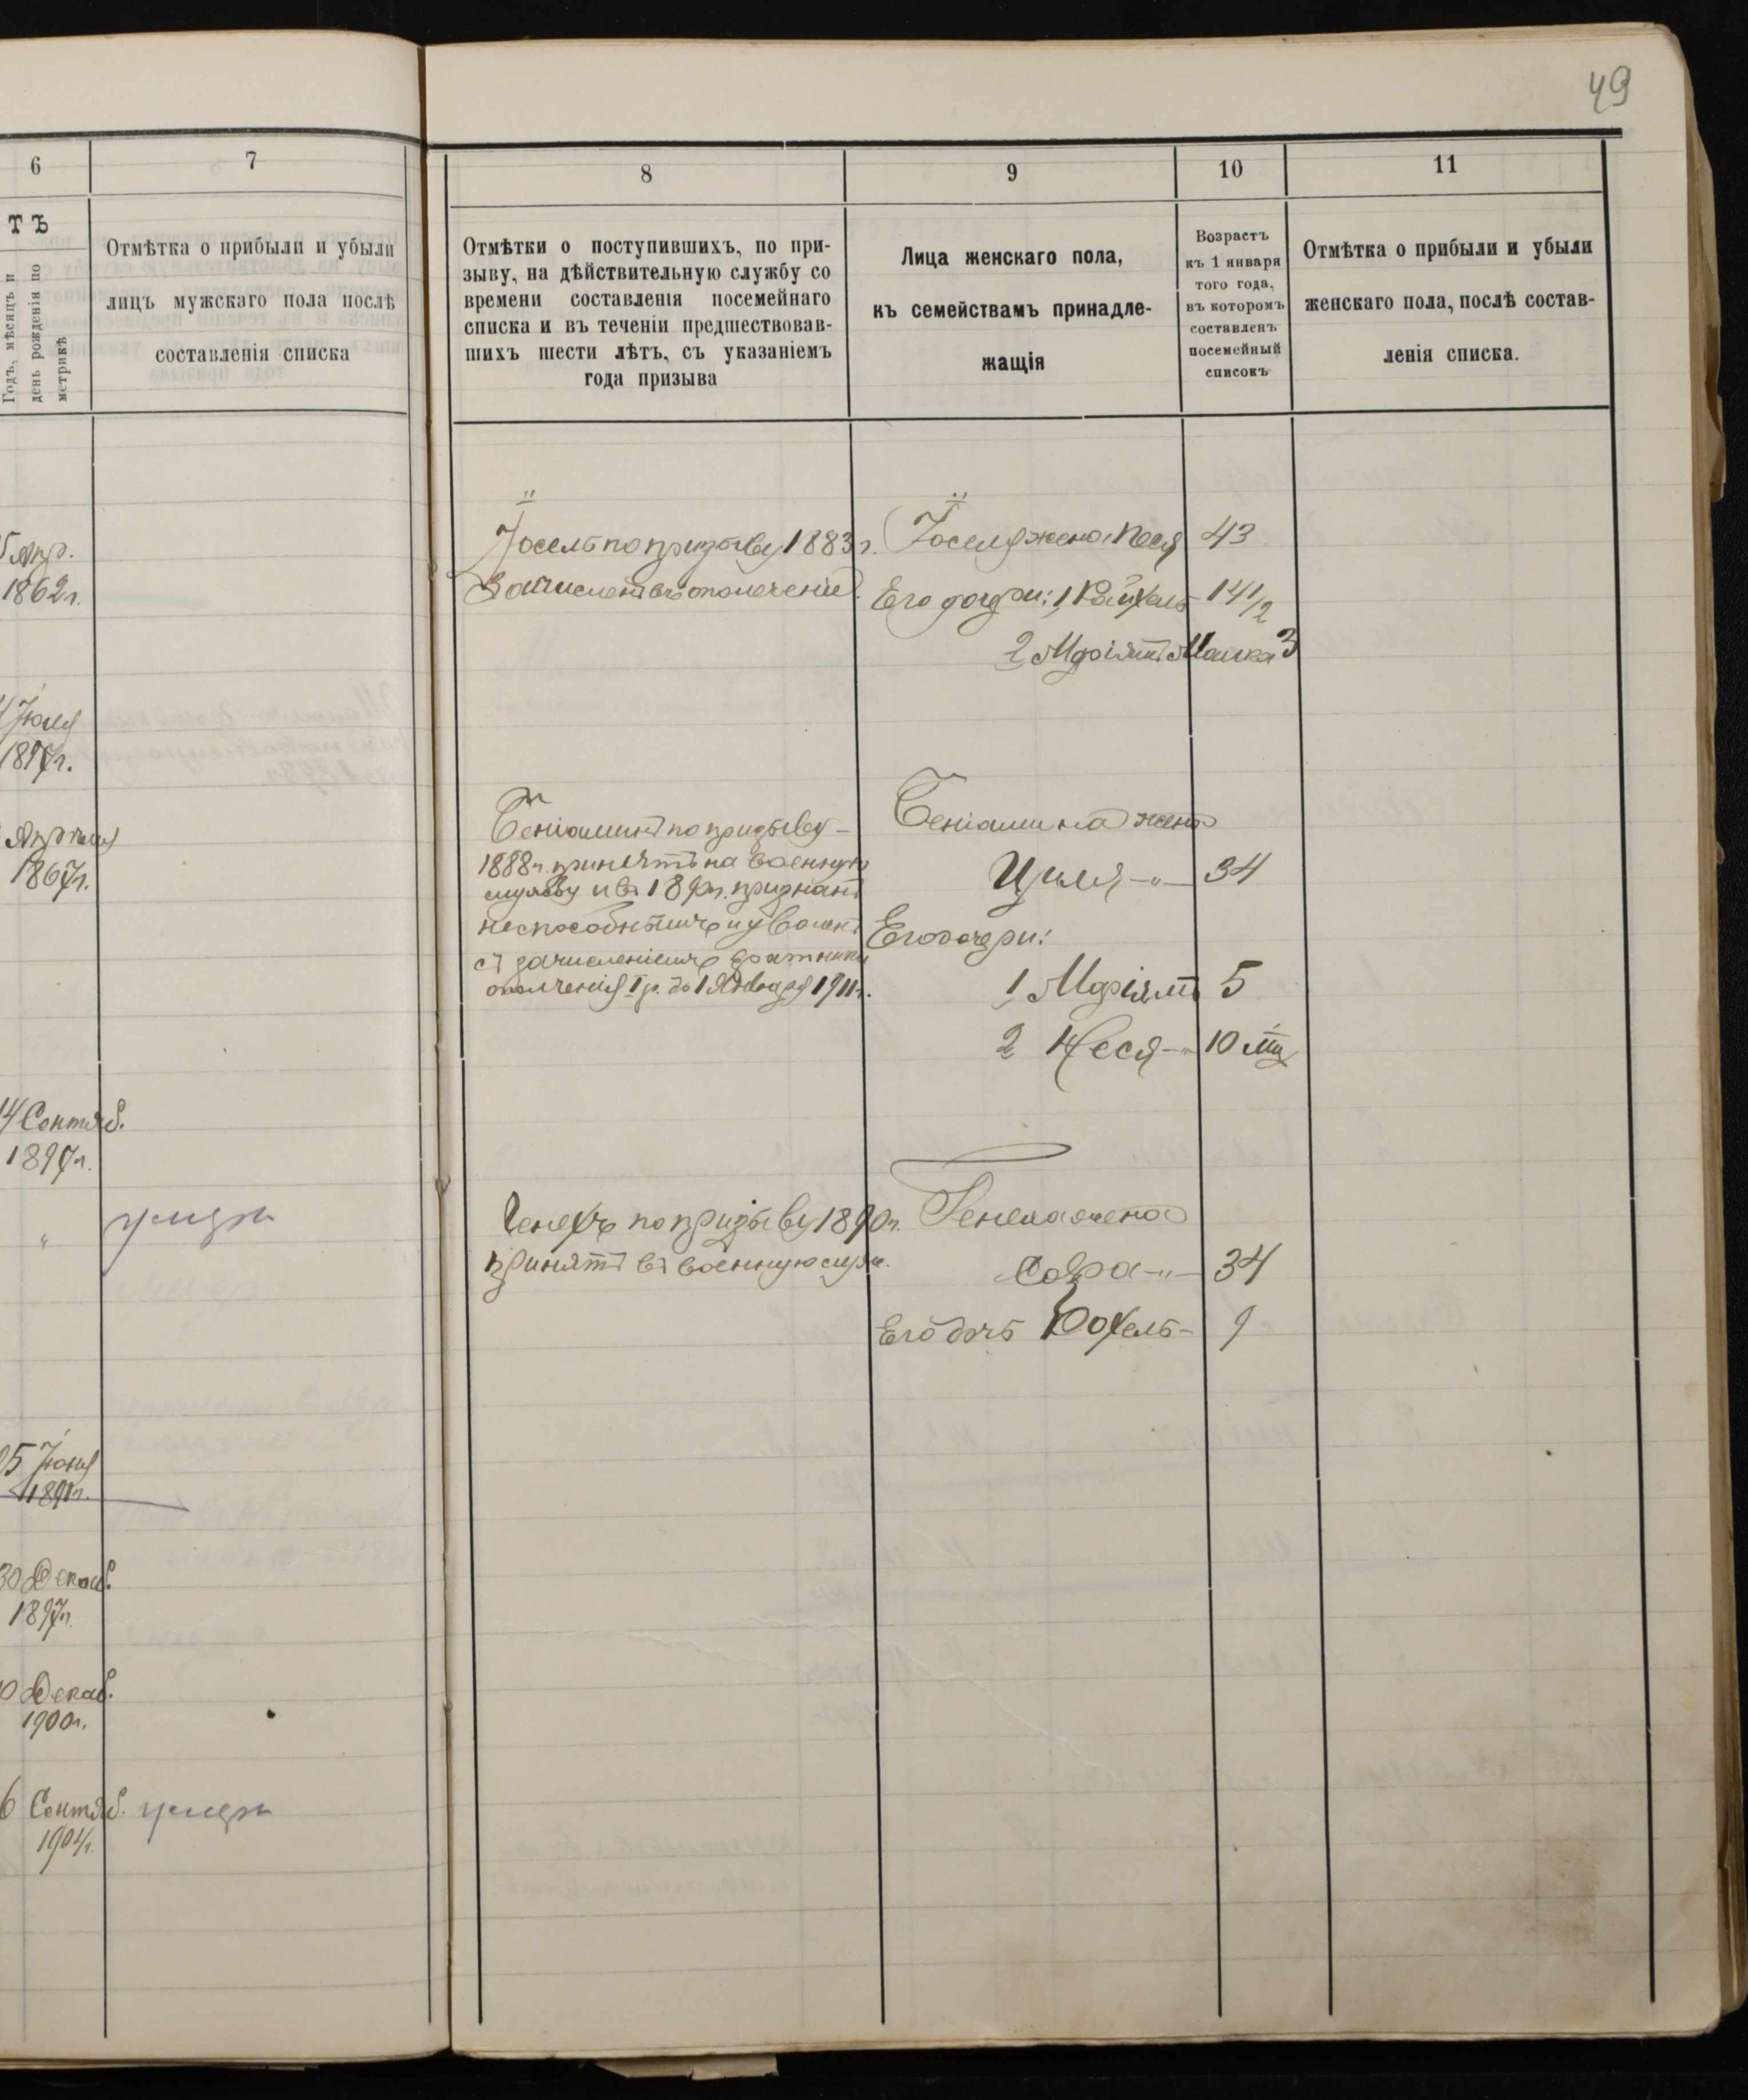 49
6
7
ТЪ
Годъ, мѣсяцъ и
день рожденія по
метрикѣ
Отмѣтка о прибыли и убыли
лицъ мужскаго пола послѣ
составленія списка
8
9
10
11
Отмѣтки о поступившихъ, по при-
зыву, на дѣйствительную службу со
времени составленія посемейнаго
списка и въ теченіи предшествовав-
шихъ шести лѣтъ, съ указаніемъ
года призыва
Лица женскаго пола,
къ семействамъ принадле-
жащія
Возрастъ
къ 1 января
того года,
въ которомъ
составленъ
посемейный
списокъ
Отмѣтка о прибыли и убыли
женскаго пола, послѣ состав-
ленія списка.
5 Апр.
1862 г.
Іюля
1897 г.
Апрѣля
1867 г.
14 Сентяб.
1897 г.
"
умеръ
25 Іюня
1891 г.
30 Декаб.
1897 г.
0 Декаб.
1900 г.
6 Сентяб. умеръ
1904 г.
Іосель по призыву 1883 г.
Зачисленъ въ ополченіе.
Іоселя жена Песя 43
Его дочери: 1, Рейхель 14 1/2
2 Маріямъ Малка 3
Беніаминъ по призыву –
1888 г. принятъ на военную
службу и въ 1890 г. признанъ
неспособнымъ и уволенъ
съ зачисленіемъ ратники
ополченія I р. до 1 Января 1911 г.
Беніамина жена
Циля – " – 34
Его дочери:
1, Маріямъ 5
2 Неся – " 10 мц
Генехъ по призыву 1890 г.
принятъ въ военную служ.
Генеха жена
Сора – " – 34
Его дочь Рохель – 9